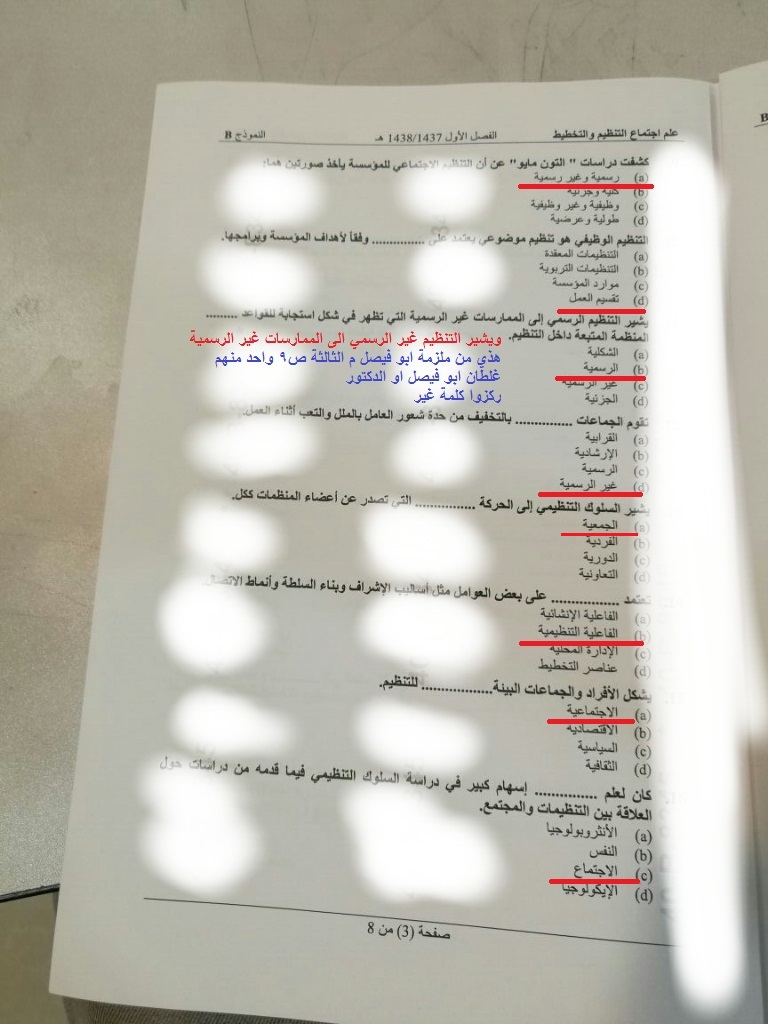 علم اجتماع التنظيم والتخطيط الفصل الأول 1438/1437 هـ النموذج B
كشفت دراسات " التون مايو" عن أن التنظيم الاجتماعي للمؤسسة يأخذ صورتين هما:
(a) رسمية وغير رسمية
(b) كلية وجزئية
(c) وظيفية وغير وظيفية
(d) طولية وعرضية
التنظيم الوظيفي هو تنظيم موضوعي يعتمد على ............... وفقاً لأهداف المؤسسة وبرامجها.
(a) التنظيمات المعقدة
(b) التنظيمات التربوية
(c) موارد المؤسسة
(d) تقسيم العمل
يشير التنظيم الرسمي إلى الممارسات غير الرسمية التي تظهر في شكل استجابة للقواعد .........
المنظمة المتبعة داخل التنظيم.
ويشير التنظيم غير الرسمي الى الممارسات غير الرسمية
هذي من ملزمة ابو فيصل م الثالثة ص٩ واحد منهم
غلطان ابو فيصل او الدكتور
ركزوا كلمة غير
(a) الشكلية
(b) الرسمية
(c) غير الرسمية
(d) الجزئية
تقوم الجماعات ............... بالتخفيف من حدة شعور العامل بالملل والتعب أثناء العمل.
(a) القرابية
(b) الإرشادية
(c) الرسمية
(d) غير الرسمية
يشير السلوك التنظيمي إلى الحركة ............... التي تصدر عن أعضاء المنظمات ككل.
(a) الجمعية
(b) الفردية
(c) الدورية
(d) التعاونية
تعتمد ................. على بعض العوامل مثل أساليب الإشراف وبناء السلطة وأنماط الاتصال.
(a) الفاعلية الإنشائية
(b) الفاعلية التنظيمية
(c) الإدارة المحلية
(d) عناصر التخطيط
يشكل الأفراد والجماعات البيئة................. للتنظيم.
(a) الاجتماعية
(b) الاقتصادية
(c) السياسية
(d) الثقافية
كان لعلم ............... إسهام كبير في دراسة السلوك التنظيمي فيما قدمه من دراسات حول
العلاقة بين التنظيمات والمجتمع.
(a) الأنثروبولوجيا
(b) النفس
(c) الاجتماع
(d) الإيكولوجيا
صفحة (3) من 8
B